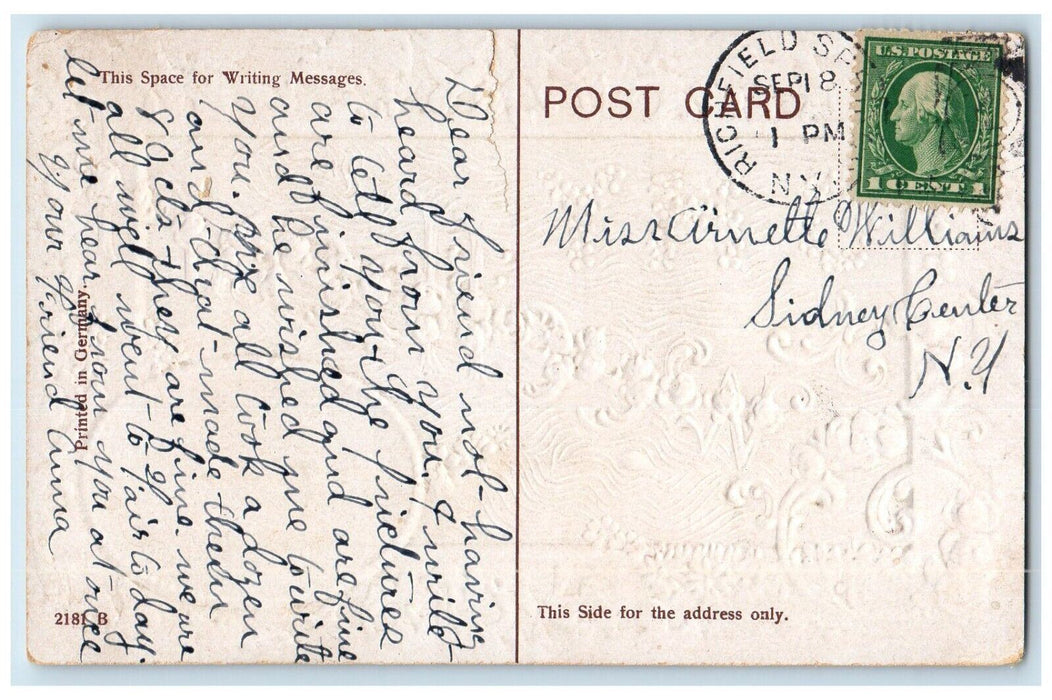 This Space for Writing Messages.
Dear Friend not having
heard from you. I write
to tell you the pictures
are finished and are fine
and he wished me to write
you. we all took a dozen
and that made them
80 cts they are fine. we are
all well went to Fair to day.
let me hear from you at once
your Friend Anna
Printed in Germany.
2181 B
POST CARD
RICHFIELD SP
SEP 18
1 PM
N.Y.
U.S. POSTAGE
1 CENT 1
Miss Arnette Williams
Sidney Center
N.Y
This Side for the address only.